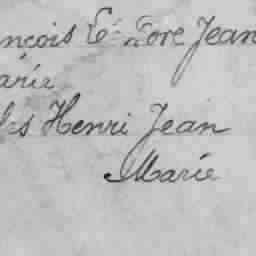 nçois Jean
arie
les Henri Jean
Marie